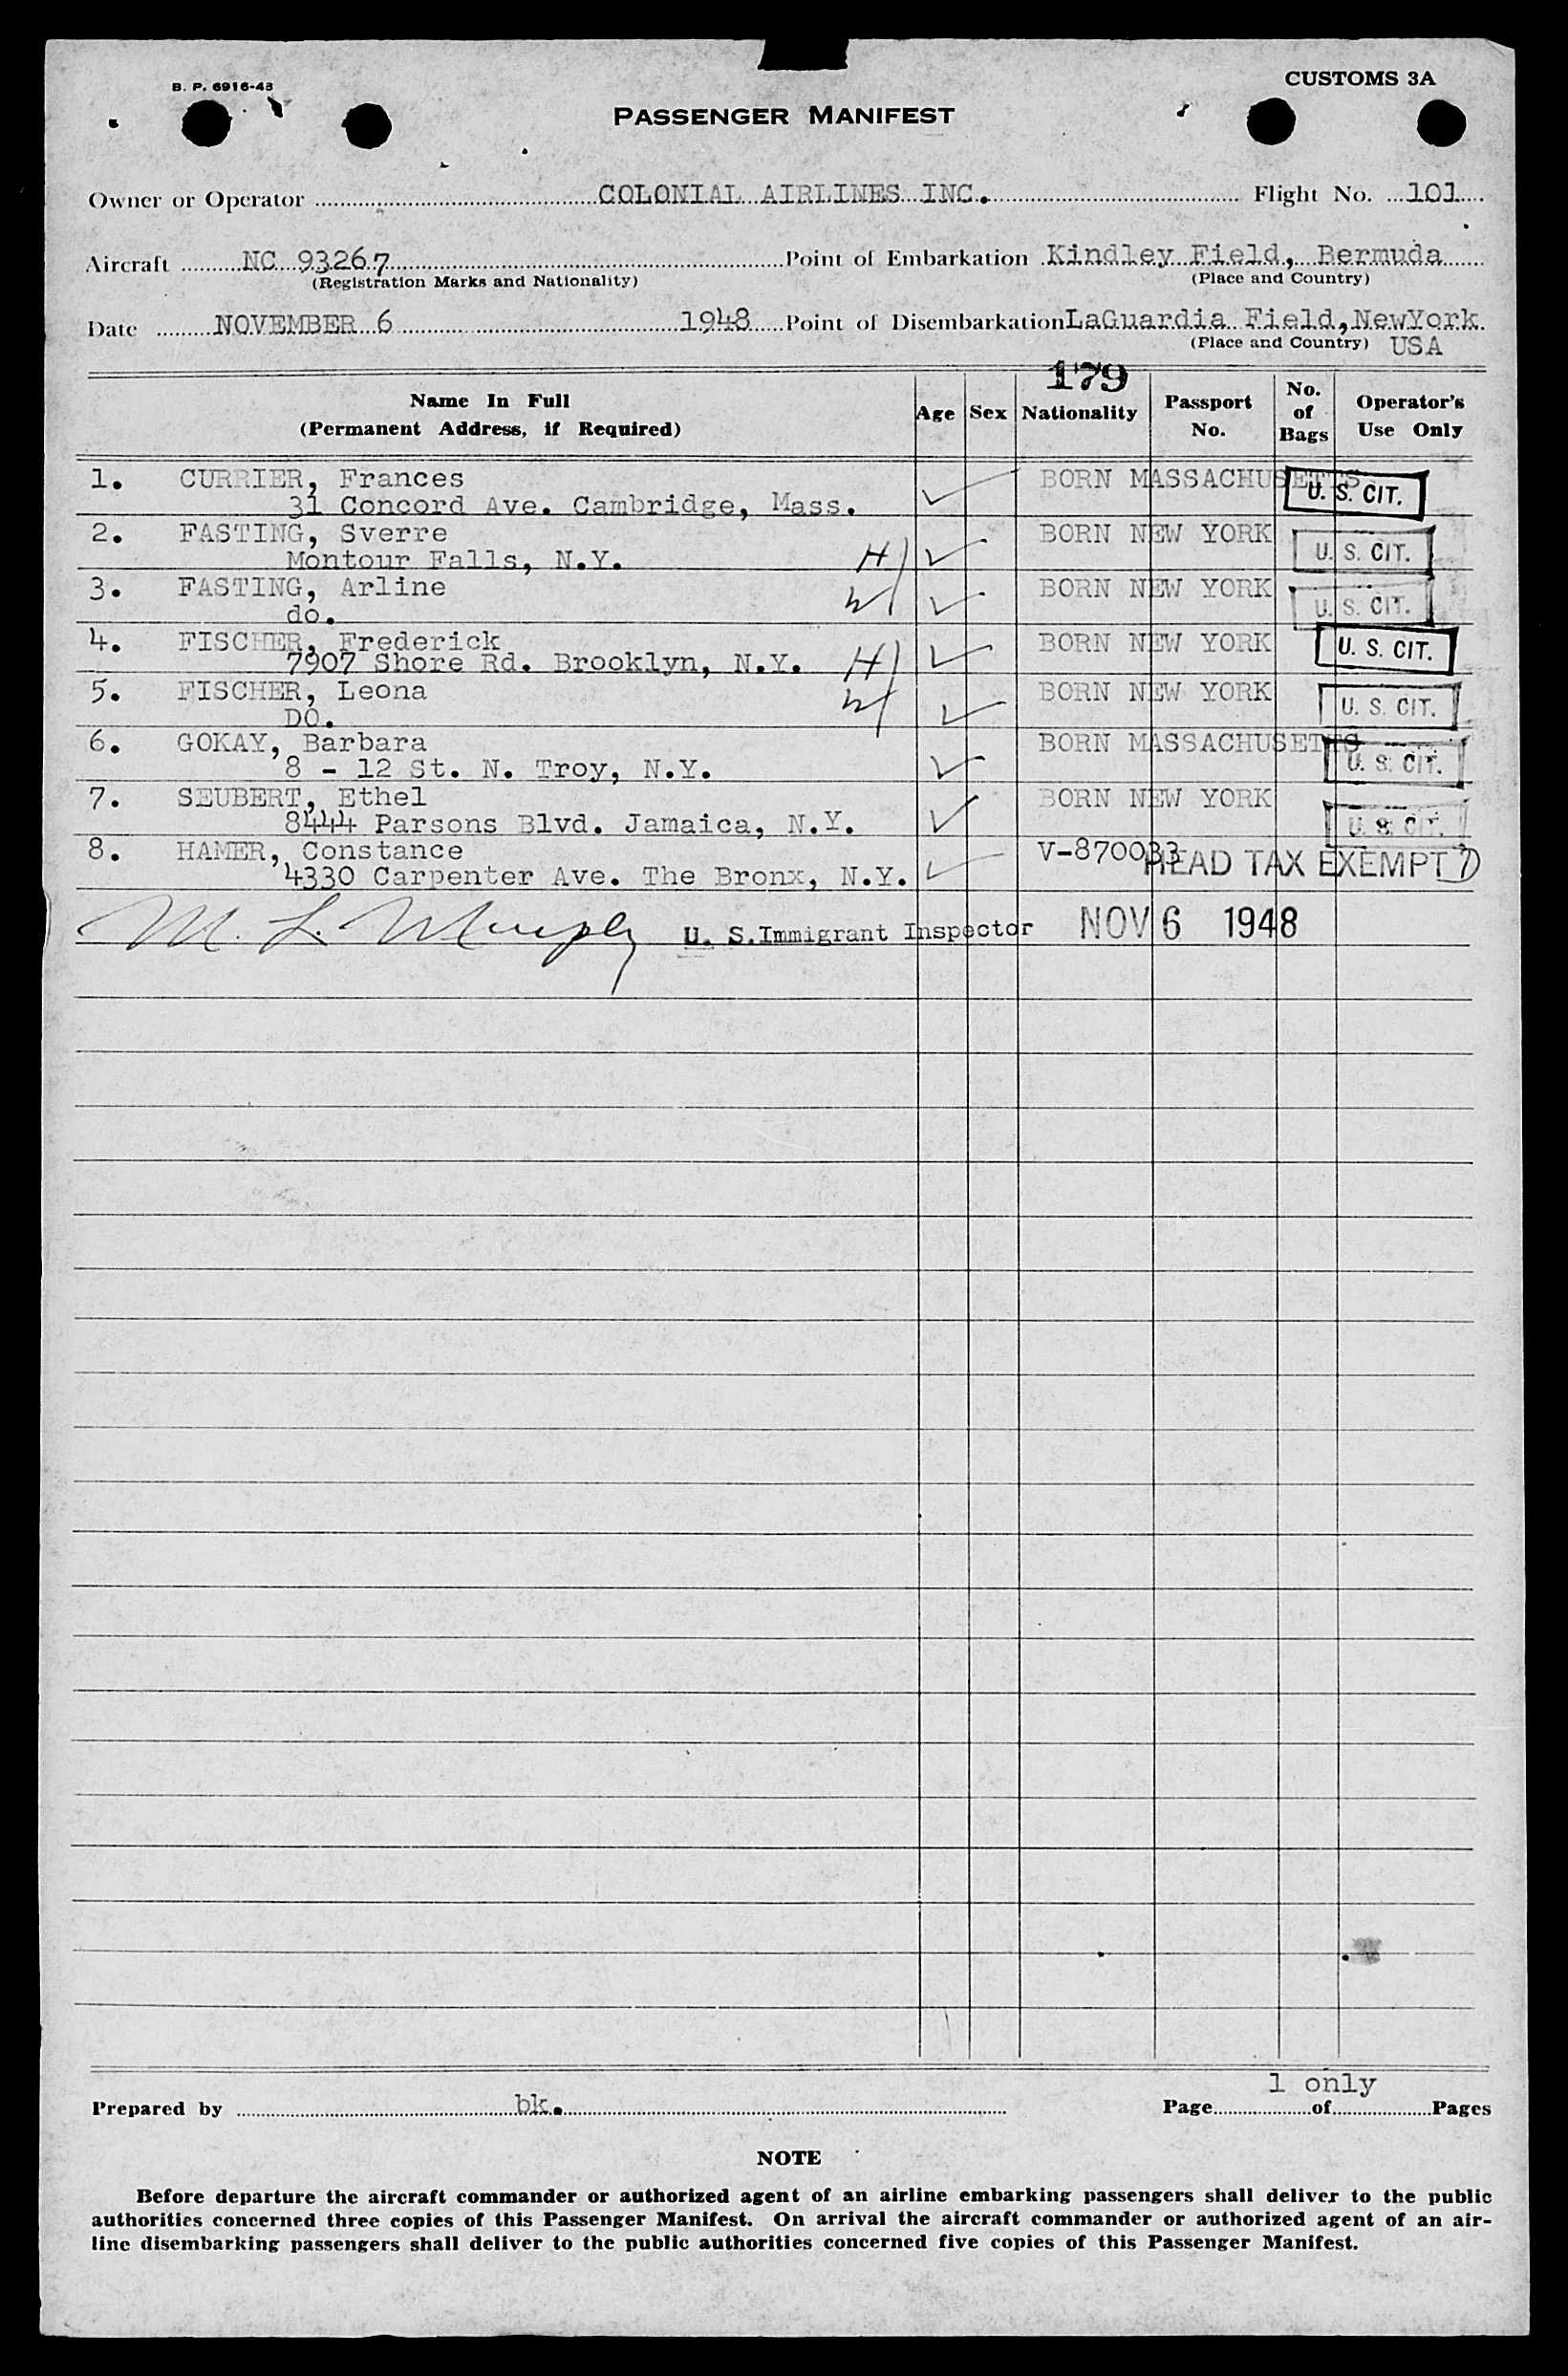 B. P. 6916-48
CUSTOMS 3A
PASSENGER MANIFEST
Owner or Operator COLONIAL AIRLINES INC. Flight No. 101
Aircraft NC 93267 Point of Embarkation Kindley Field, Bermuda
(Registration Marks and Nationality) (Place and Country)
Date NOVEMBER 6 1948 Point of Disembarkation LaGuardia Field, NewYork
(Place and Country) USA
179
Name In Full
(Permanent Address, if Required)
Age Sex Nationality Passport No. No. of Bags Operator's Use Only
1. CURRIER, Frances BORN MASSACHUSETTS U. S. CIT.
31 Concord Ave. Cambridge, Mass.
2. FASTING, Sverre BORN NEW YORK U. S. CIT.
Montour Falls, N.Y. H
3. FASTING, Arline BORN NEW YORK U. S. CIT.
do. W
4. FISCHER, Frederick BORN NEW YORK U. S. CIT.
7907 Shore Rd. Brooklyn, N.Y. H
5. FISCHER, Leona BORN NEW YORK U. S. CIT.
DO. W
6. GOKAY, Barbara BORN MASSACHUSETTS U. S. CIT.
8 - 12 St. N. Troy, N.Y.
7. SEUBERT, Ethel BORN NEW YORK U. S. CIT.
8444 Parsons Blvd. Jamaica, N.Y.
8. HAMER, Constance V-870033 HEAD TAX EXEMPT
4330 Carpenter Ave. The Bronx, N.Y.
M. L. Murphy U. S. Immigrant Inspector NOV 6 1948
1 only
Prepared by bk. Page of Pages
NOTE
Before departure the aircraft commander or authorized agent of an airline embarking passengers shall deliver to the public
authorities concerned three copies of this Passenger Manifest. On arrival the aircraft commander or authorized agent of an air-
line disembarking passengers shall deliver to the public authorities concerned five copies of this Passenger Manifest.